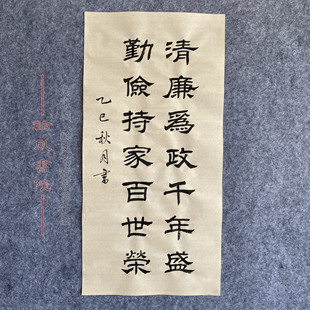 清廉爲政千年盛
勤儉持家百世榮
乙巳秋月書